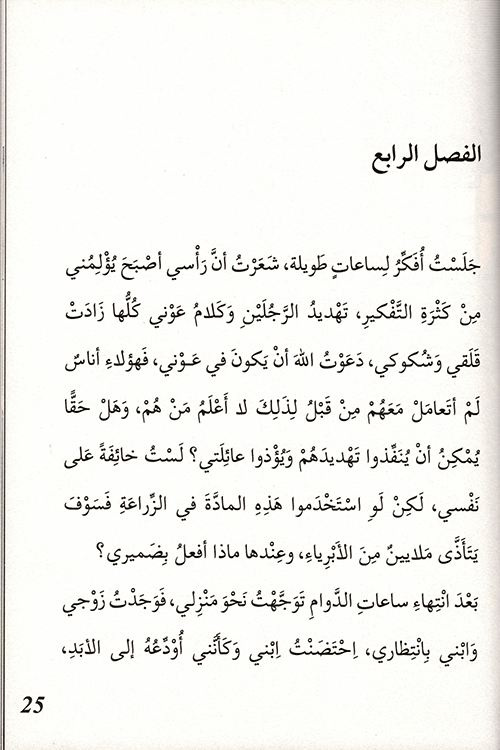 الفصل الرابع
جَلَسْتُ أُفَكِّرُ لِساعاتٍ طَويلة، شَعَرْتُ أنَّ رَأْسي أصْبَحَ يُؤْلِمُني
مِنْ كَثْرَةِ التَّفْكيرِ، تَهْديدُ الرَّجُلَيْنِ وَكَلامُ عَوْني كُلُّها زَادَتْ
قَلَقي وَشُكوكي، دَعَوْتُ اللهَ أنْ يَكونَ في عَـوْني، فَهؤلاءِ أناسٌ
لَمْ أتَعامَلْ مَعَهُمْ مِنْ قَبْلُ لِذَلِكَ لا أَعْلَمُ مَنْ هُمْ، وَهَلْ حَقًّا
يُمْكِنُ أنْ يُنَفِّذوا تَهْديدَهُمْ وَيُؤْذوا عائِلَتي؟ لَسْتُ خائِفَةً عَلى
نَفْسي، لَكِنْ لَوِ اسْتَخْدَموا هَذِهِ المادَّةَ في الزِّراعَةِ فَسَوْفَ
يَتَأَذَّى مَلايينٌ مِنَ الأَبْرِياءِ، وعِنْدها ماذا أفعلُ بِضَميري؟
بَعْدَ انْتِهاءِ ساعاتِ الدَّوامِ تَوَجَّهْتُ نَحْوَ مَنْزِلي، فَوَجَدْتُ زَوْجي
وَابْني بِانْتِظاري، اِحْتَضَنْتُ اِبْني وَكَأَنَّني أُوَدِّعُهُ إلى الأبَدِ،
25